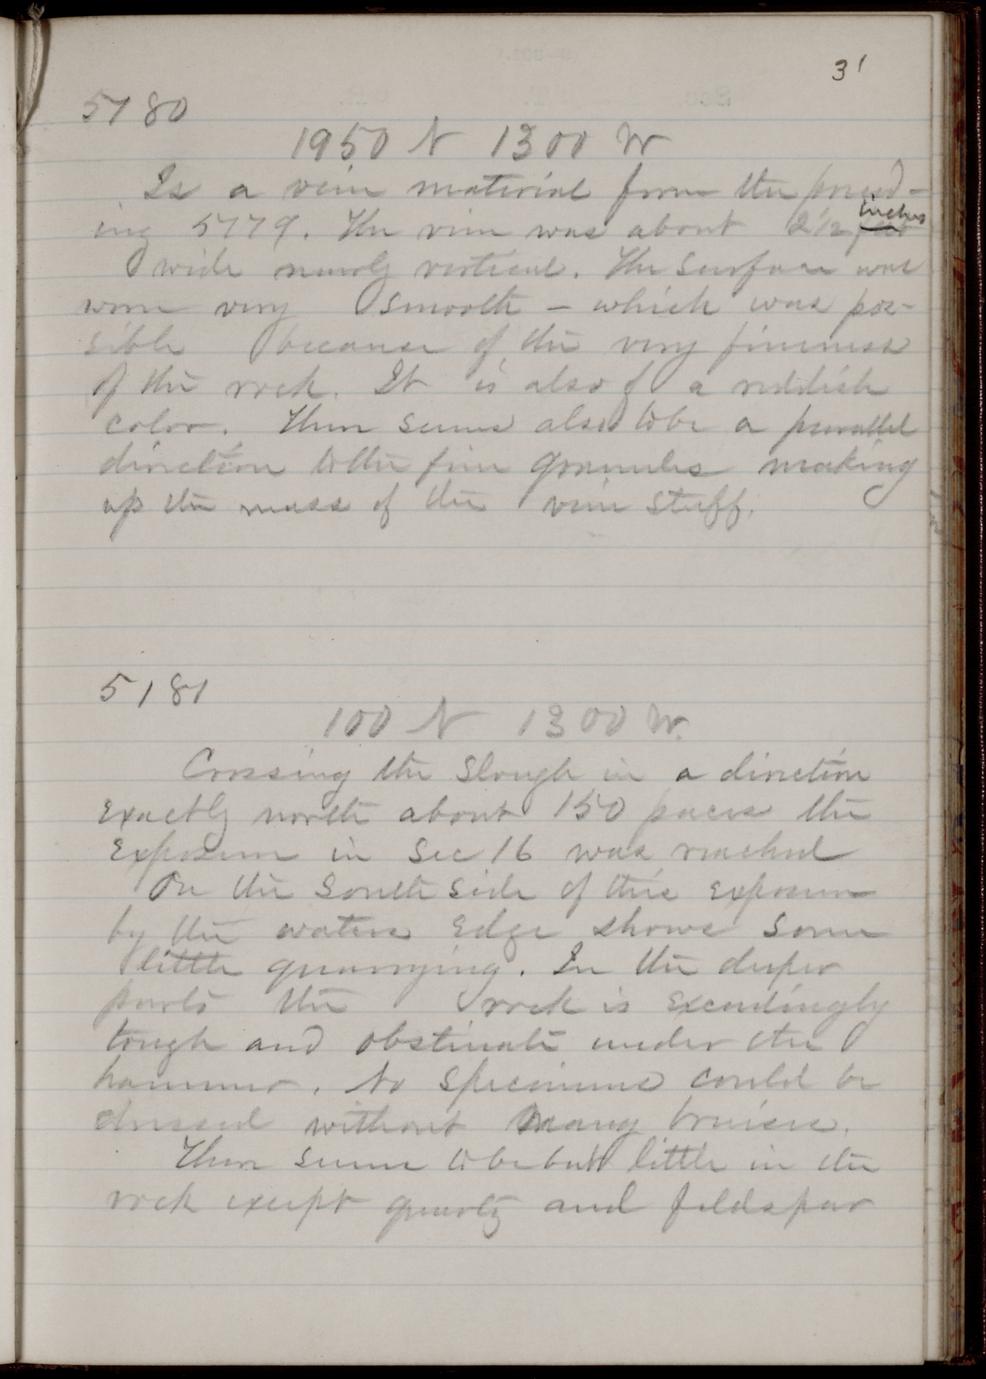 31
5180
1950 N 1300 W
Is a vein material from the preced-
ing 5179. The vein was about 2 1/2 inches
wide nearly vertical. The surface was
worn very smooth – which was pos-
sible because of the very fineness
of the rock. It is also of a reddish
color. There seems also to be a parallel
direction to the fine granules making
up the mass of the vein stuff.
5181
100 N 1300 W.
Crossing the Slough in a direction
exactly north about 150 paces the
exposure in Sec 16 was reached
On the South Side of this exposure
by the waters edge shows some
little quarrying. In the deeper
parts the rock is exceedingly
tough and obstinate under the
hammer. No specimens could be
dressed without many bruises.
There seems to be but little in the
rock except quartz and feldspar